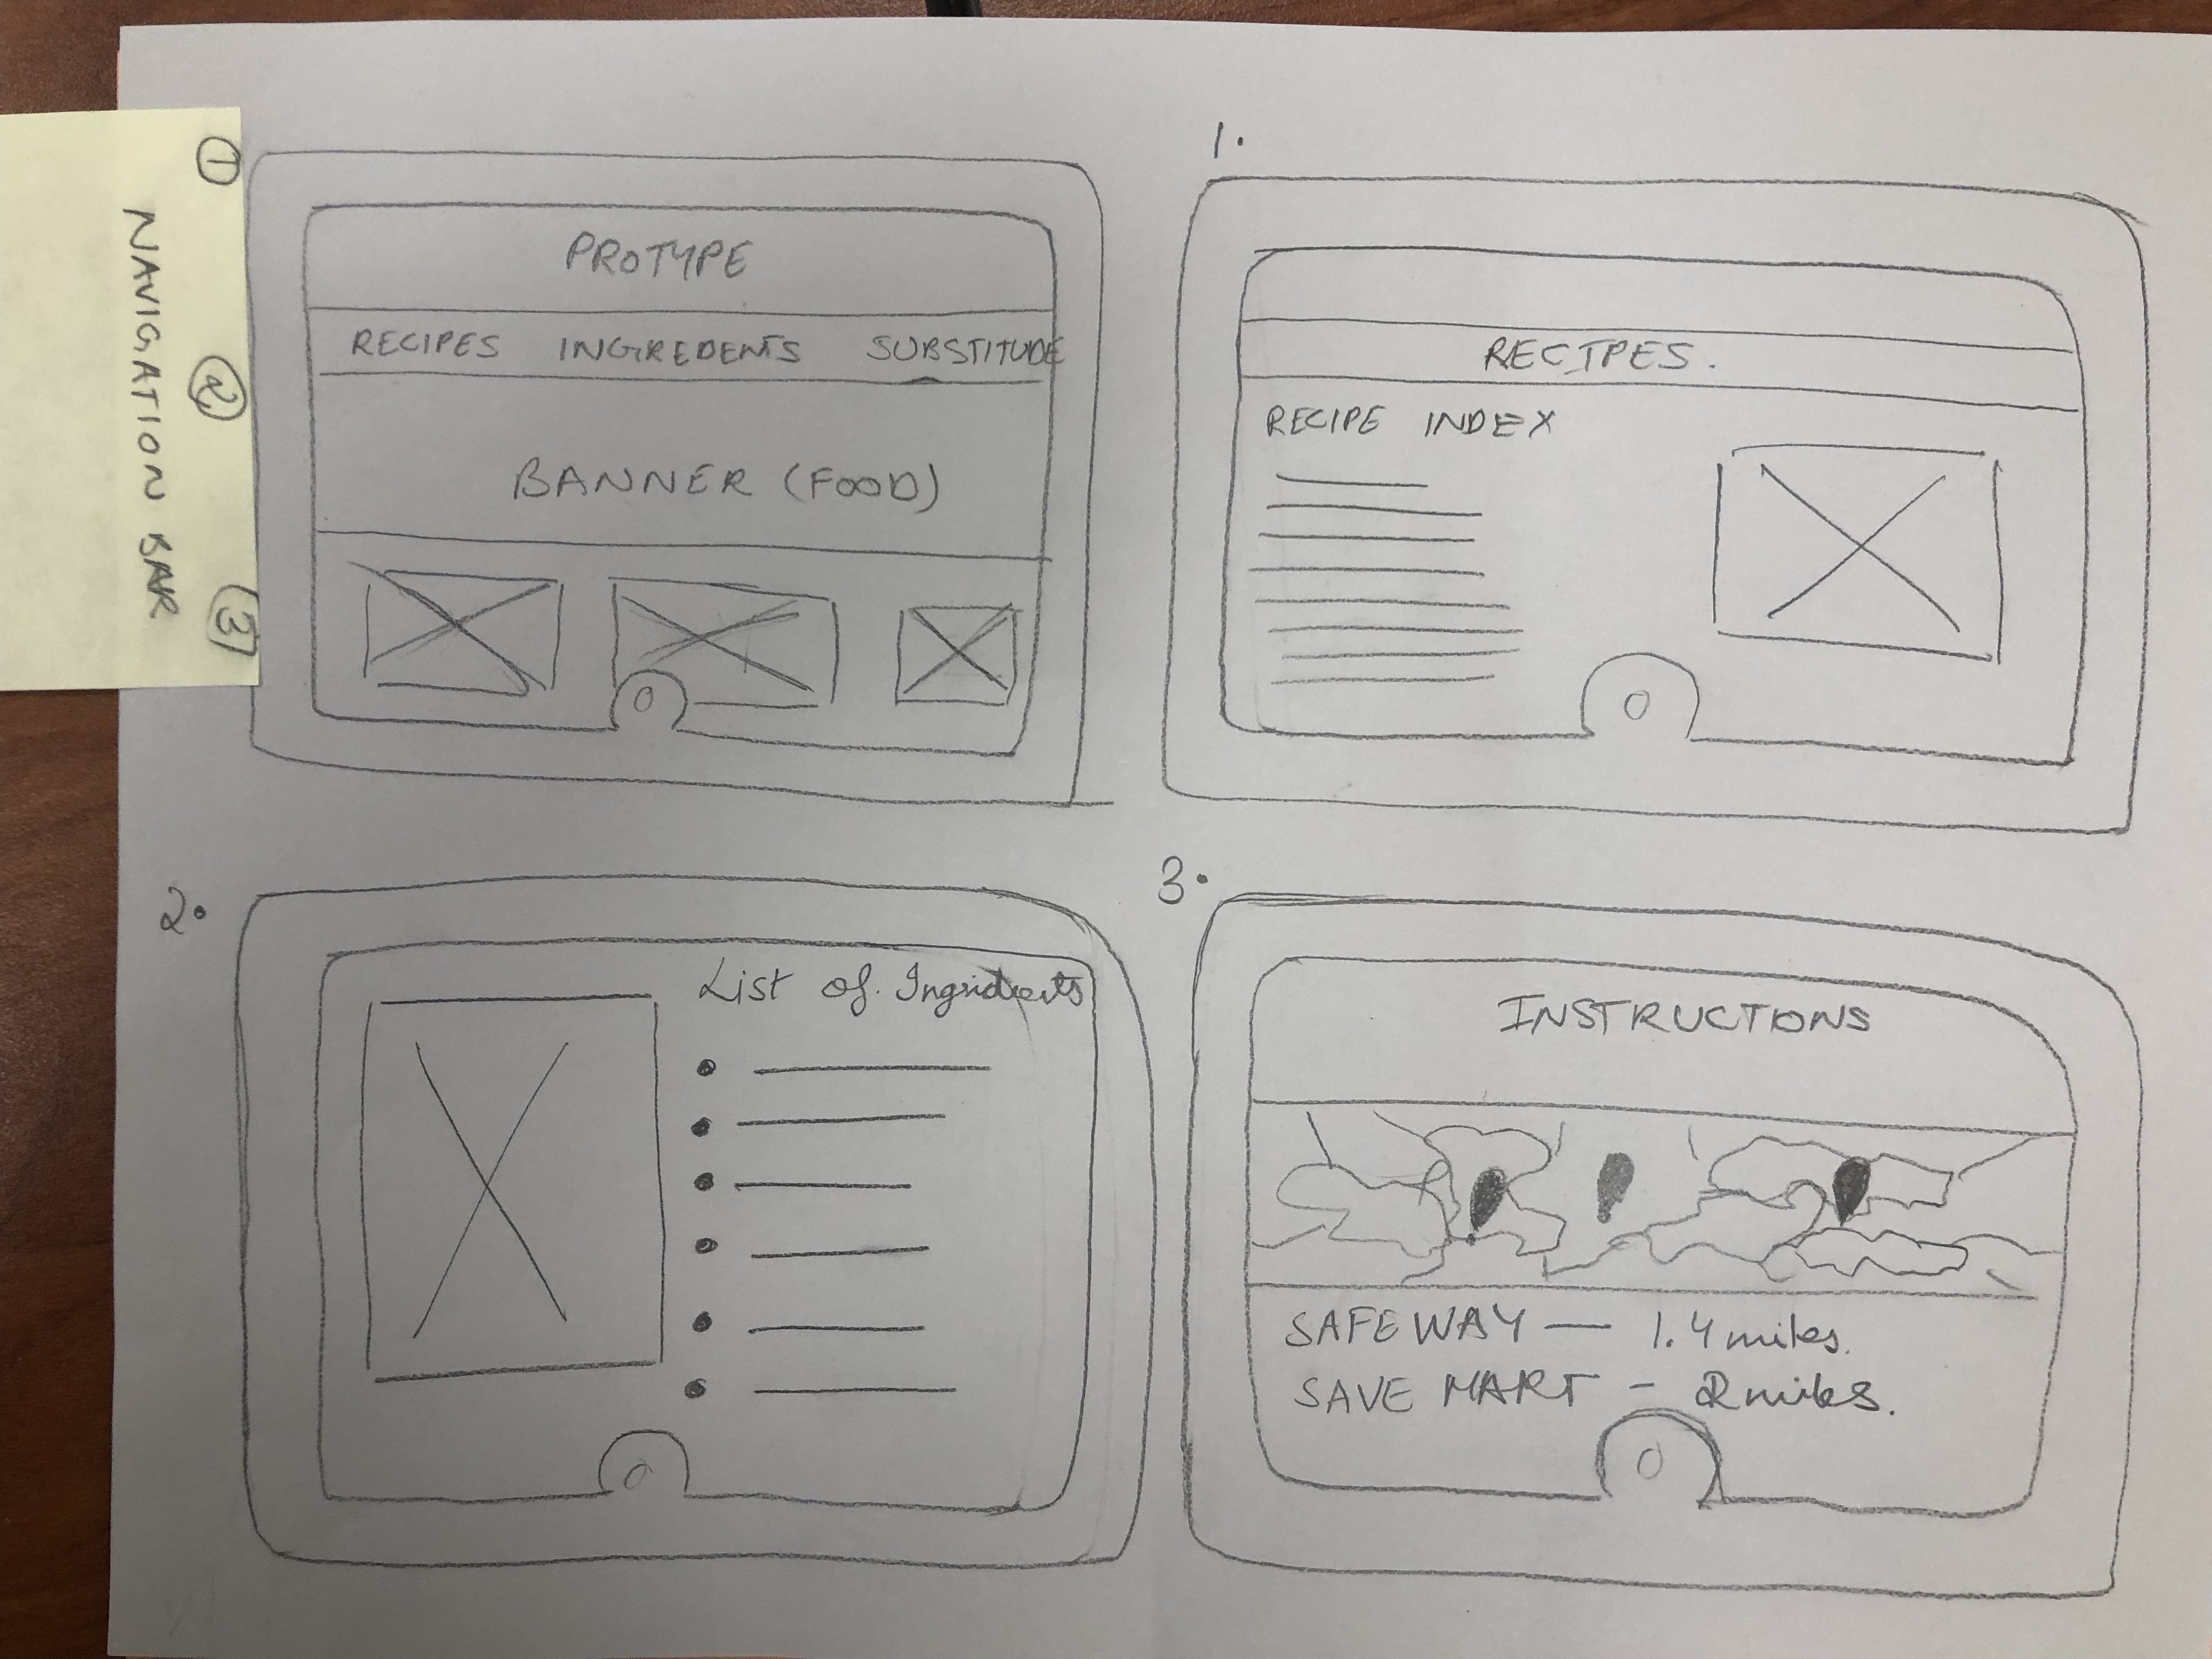 ① ② ③
NAVIGATION BAR
PROTYPE
RECIPES INGREDENTS SUBSTITUDE
BANNER (FOOD)
1.
RECIPES.
RECIPE INDEX
2.
List of. Ingridients
3.
INSTRUCTIONS
SAFEWAY — 1.4 miles.
SAVE MART - 2 miles.